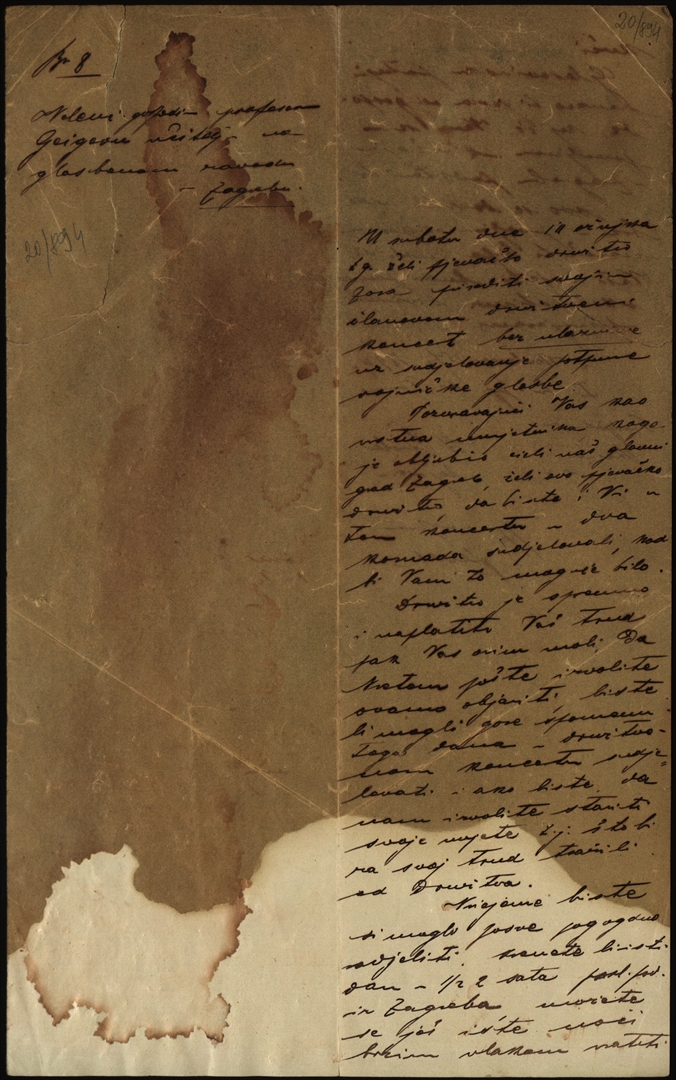 20/894
Br 8
Velecj. gospodin profesor
Geigeru učitelj na
glasbenom zavodu
Zagrebu.
20/894
U subotu dne 10 ožujka
t.g. želi pjevačko društvo
Zora prirediti svojim
članovom društveni
koncert bez ulaznine
uz sudjelovanje potpune
vojničke glasbe.
Poznavajući Vas kao
vrstna umjetnika koga
je obljubio cieli naš glavni
grad Zagreb želi ovo pjevačko
društvo da biste i Vi u
tom koncertu u dva
komada sudjelovali, kad
bi Vam to moguće bilo.
Društvo je spremno
i naplatiti Vaš trud
pak Vas ovim moli da
kratom pošte izvolite
ovamo objaviti biste
li mogli gore spomenu-
toga dana u društve-
nom koncertu sudje-
lovati i ako biste, da
nam izvolite staviti
svoje uvjete t.j. što bi
za svoj trud tražili
od Društva.
Vrijeme biste
si moglo posve pogodno
udjeliti. krenete li isti
dan u 1/2 2 sata posl. pod.
iz Zagreba možete
se još iste noći
brzim vlakom vratiti